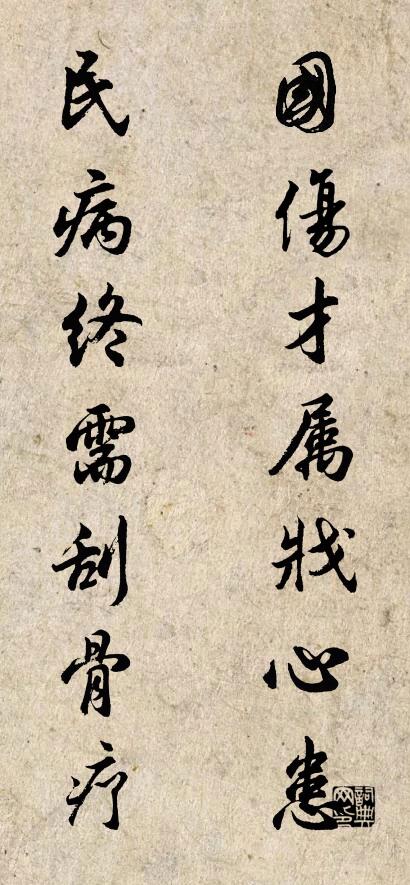 國傷才属戕心患
民病终需刮骨疗
詞典
网印